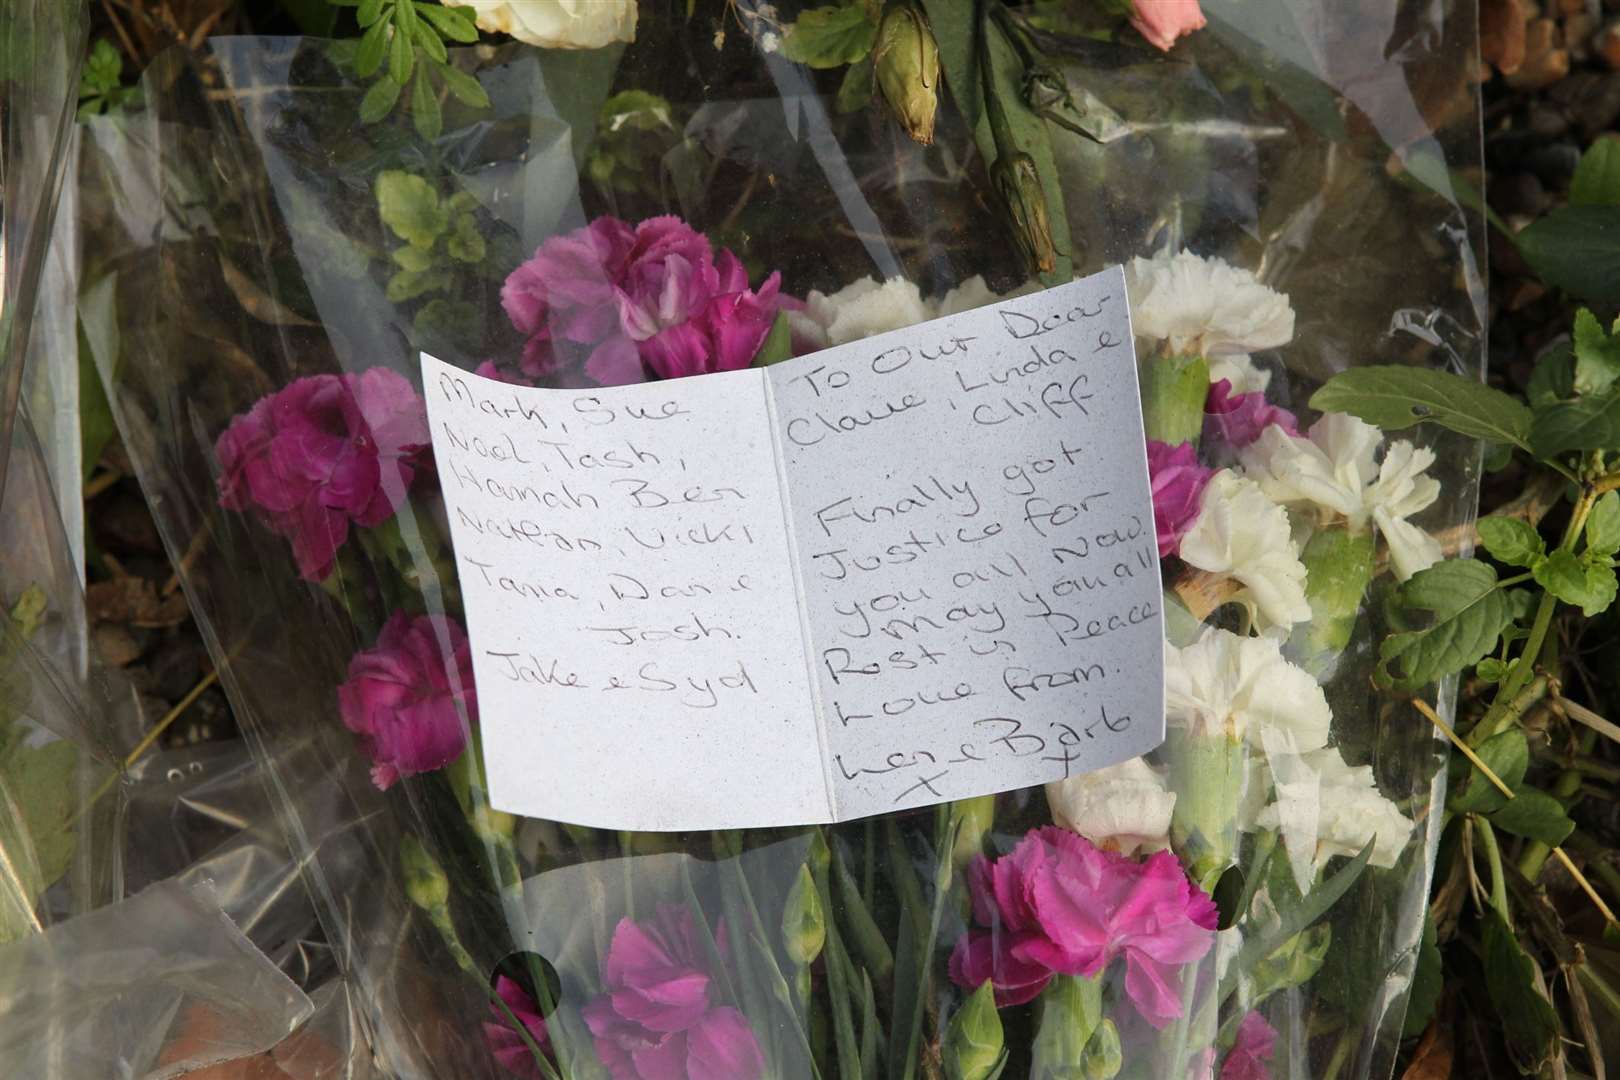 Mark, Sue
Noel, Tash,
Hannah Ben
Nathan, Vicki
Tania, Dan e
Josh.
Jake e Syd
To Our Dear
Claire, Linda e
Cliff
Finally got
Justice for
you all Now.
May you all
Rest in Peace
Love from.
Len e Barb
x x